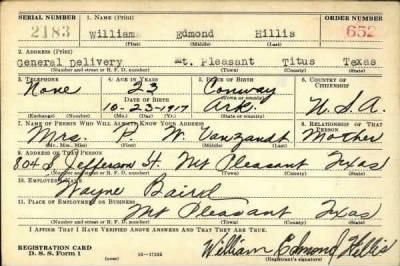 SERIAL NUMBER 1. NAME (Print) ORDER NUMBER
2183 William Edmond Hillis 652
(First) (Middle) (Last)
2. ADDRESS (Print)
General Delivery Mt. Pleasant Titus Texas
(Number and street or R. F. D. number) (Town) (County) (State)
3. TELEPHONE 4. AGE IN YEARS 5. PLACE OF BIRTH 6. COUNTRY OF CITIZENSHIP
None 23 Conway
DATE OF BIRTH (Town or county)
10-23-1917 Ark. U.S.A.
(Exchange) (Number) (Mo.) (Day) (Yr.) (State or country)
7. NAME OF PERSON WHO WILL ALWAYS KNOW YOUR ADDRESS 8. RELATIONSHIP OF THAT PERSON
Mrs. P. W. Vanzandt Mother
(Mr., Mrs., Miss) (First) (Middle) (Last)
9. ADDRESS OF THAT PERSON
804 S. Jefferson St. Mt Pleasant Texas
(Number and street or R. F. D. number) (Town) (County) (State)
10. EMPLOYER'S NAME
Wayne Baird
11. PLACE OF EMPLOYMENT OR BUSINESS
Mt Pleasant Texas
(Number and street or R. F. D. number) (Town) (County) (State)
I AFFIRM THAT I HAVE VERIFIED ABOVE ANSWERS AND THAT THEY ARE TRUE.
REGISTRATION CARD
D. S. S. Form 1 William Edmond Hillis
(Registrant's signature)